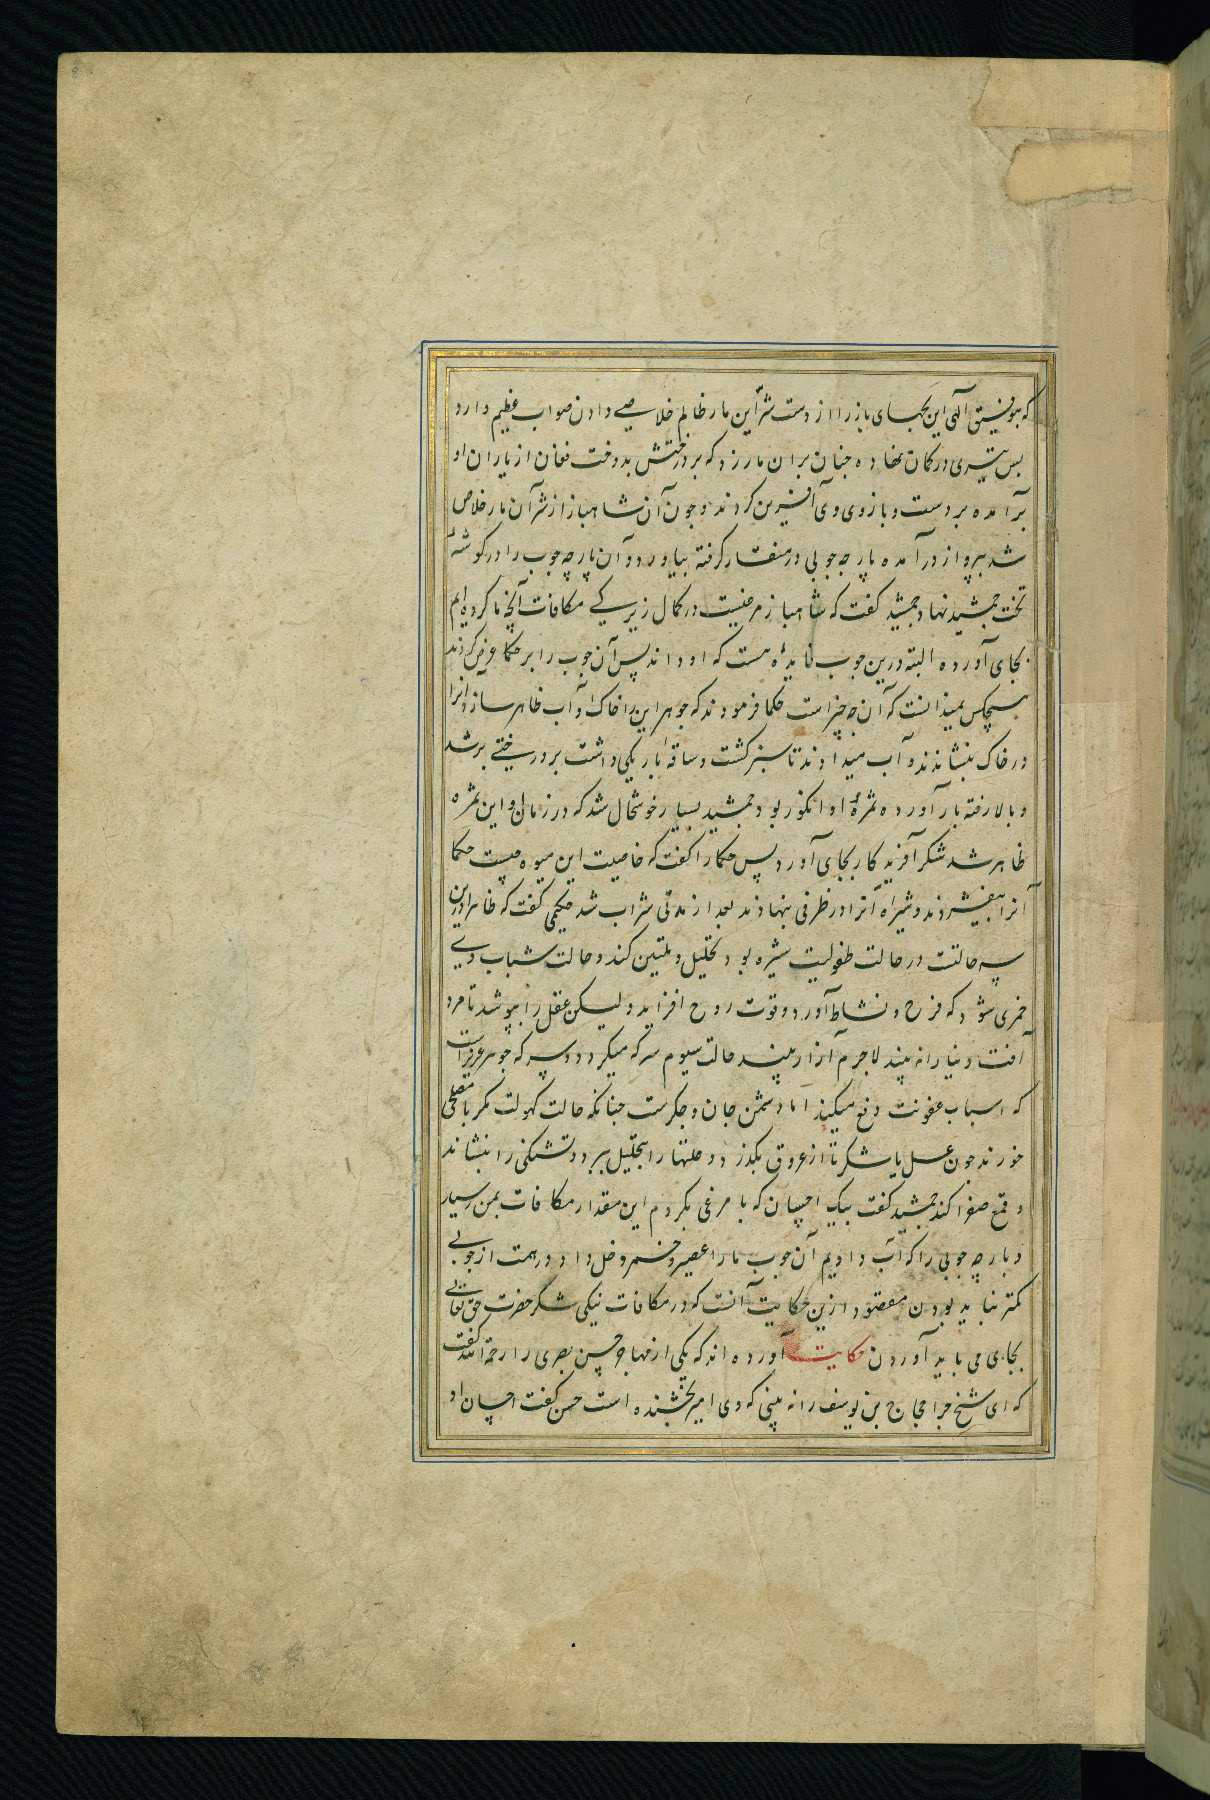 که بتوفیق الهی این بچهای باز را از دست شر این مار ظالم خلاصی دادن صواب عظیم دارد
پس تیری در کمان نهاده چنان بران مار زد که بر درختش بدوخت فغان از یاران او
برآمده بر دست و بازوی وی آفرین کردند و چون آن شاهباز از شر آن مار خلاص
شد بپرواز درآمده پارچه چوبی در منقار کرفته بیاورد و آن پارچه چوب را در کوشهٔ
تخت جمشید نهاد جمشید کفت که شاهباز مرغیست در کمال زیرکی مکافات آنچه ما کرده ایم
بجای آورده البته درین چوب فایدهٔ هست که او داند پس آن چوب را بر حکما عرض کردند
هیچکس نمیدانست که آن چه چیز است حکما فرمودند که جوهر این را خاک و آب ظاهر سازد آنرا
در خاک بنشاندند و آب میدادند تا سبز کشت و ساقهٔ باریکی داشت بر درختی بر شد
و بالا رفته بار آورده ثمرهٔ او انکور بود جمشید بسیار خوشحال شد که در زمان او این ثمره
ظاهر شد شکر آفریدکار بجای آورد پس حکما را کفت که خاصیت این میوه چیست حکما
آنرا بیفشردند و شیراه آنرا در ظرفی بنهادند بعد از مدتی شراب شد حکیمی کفت که ظاهرا درین
سه حالتست در حالت طفولیت شیره بود تحلیل و تلیین کند و حالت شباب وی
خمری شود که فرح و نشاط آورد و قوت روح افزاید ولیکن عقل را بپوشد تا مرد
آفت دنیا را نه بیند لاجرم آزار بیند حالت سیوم سرکه میکردد و سرکه جوهر عزیزاست
که اسباب عفونت دفع میکند اما دشمن جان و جکرست چنانکه حالت کهولت مکر با مصلحی
خورند چون عسل یا شکر تا از عروق بکذرد و خلتها را بتحلیل ببرد و تشنکی را بنشاند
و قمع صفرا کند جمشید کفت بیک احسان که با مرغی بکردم این مقدار مکافات بمن رسید
و پارچه چوبی را که آب دادیم آن چوب ما را عصیر و خمر و خل داد در همت از چوبی
کمتر نباید بودن مقصود ازین حکایت آنست که در مکافات نیکی شکر حضرت حق تعالی
بجای می باید آوردن حکایت آورده اند که یکی از فهما حسن بصری را رحمة الله کفت
که ای شیخ چرا حجاج بن یوسف را نه بینی که وی امیر بخشنده است حسن کفت احسان او